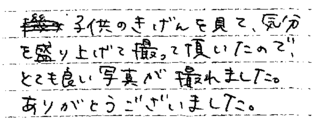 子供のきげんを見て、気分
を盛り上げて撮って頂いたので、
とても良い写真が撮れました。
ありがとうございました。